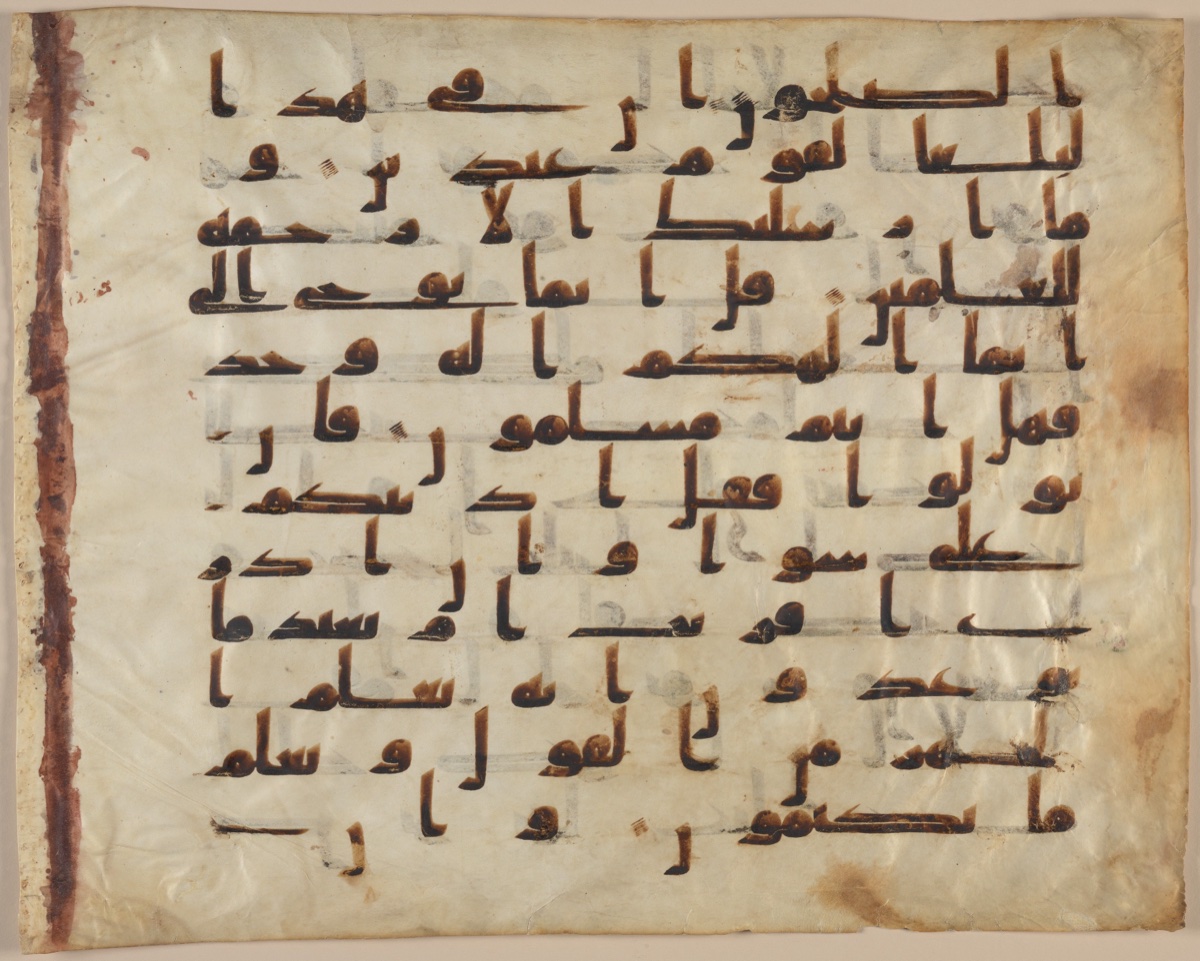 الصلحون ان فى هذا
لبلغا لقوم عبدين و
ما ارسلنك الا رحمه
للعلمين قل انما يوحى الى
انما الهكم اله وحد
فهل انتم مسلمون فان
تولوا فقل اذنتكم
على سوا وان ادر
ى اقريب ام بعيد ما
توعدون انه يعلم ا
لجهر من القول ويعلم
ما تكتمون وان